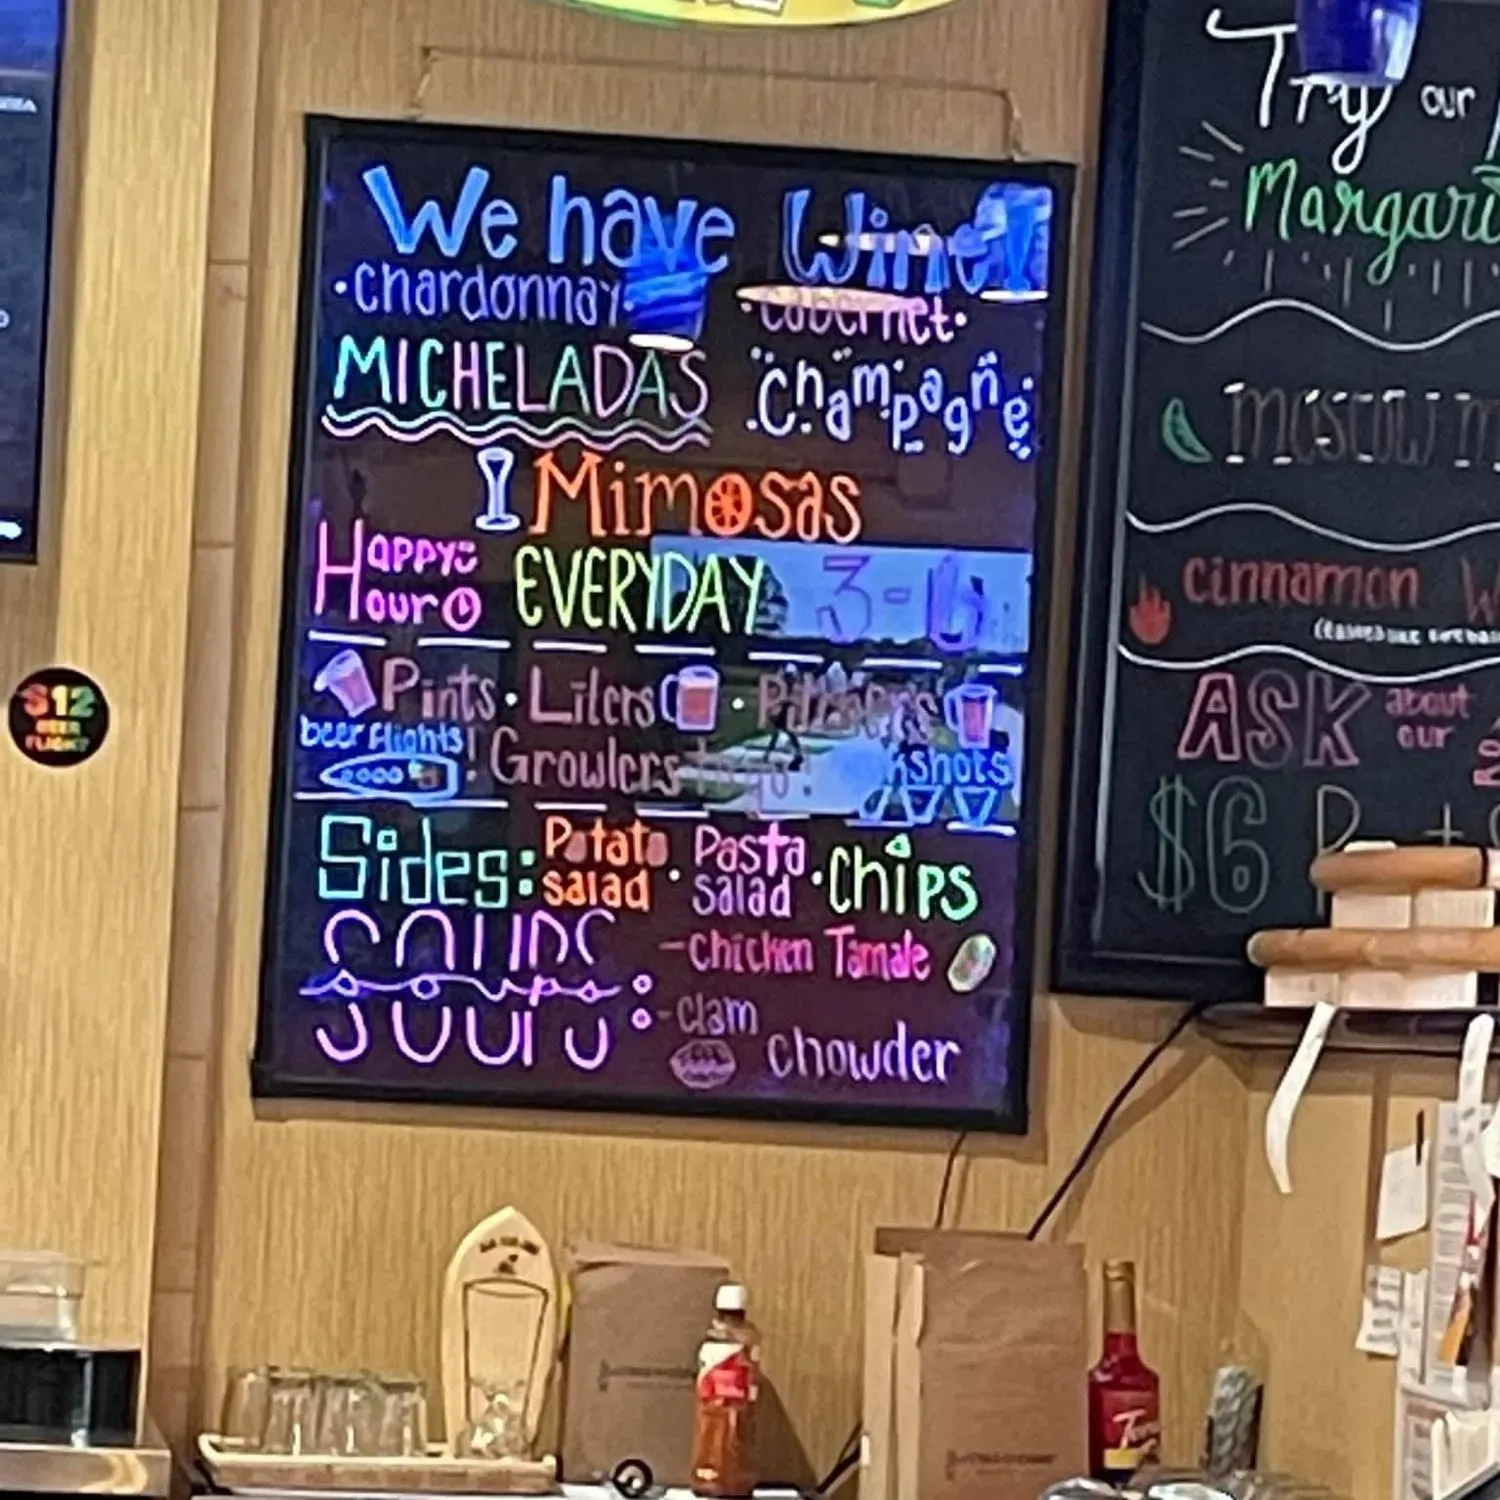 We have Wine!
•Chardonnay•
•Cabernet•
MICHELADAS
Champagne
Mimosas
HAPPY
Hour
EVERYDAY 3-6
Pints • Liters • Pitchers
beer flights! • Growlers to go! shots
Sides: Potato salad • Pasta salad • Chips
SOUPS
soups:
-Chicken Tamale
-Clam chowder
Try our
Margari
cinnamon
ASK about our
$6
$12
BEER
FLIGHT